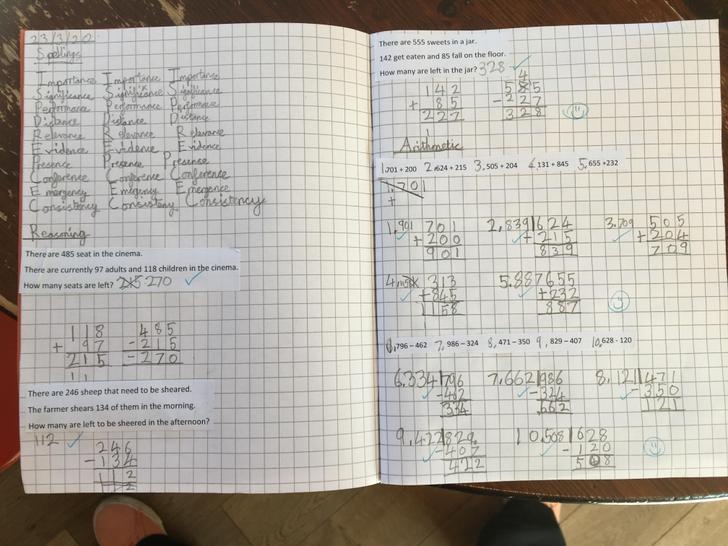 23/3/20
Spellings
Importance Importance Importance
Significance Significance Significance
Performance Performance Performance
Distance Distance Distance
Relevance Relevance Relevance
Evidence Evidence Evidence
Presence Presence Presence
Conference Conference Conference
Emergency Emergency Emergence
Consistency Consisteny Consistency
Reasoning
There are 485 seat in the cinema.
There are currently 97 adults and 118 children in the cinema.
How many seats are left? 215 270
118 485
+ 97 -215
215 -270
11
There are 246 sheep that need to be sheared.
The farmer shears 134 of them in the morning.
How many are left to be sheered in the afternoon?
112
246
-134
112
There are 555 sweets in a jar.
142 get eaten and 85 fall on the floor.
How many are left in the jar? 328
4
142 555
+ 85 -227
227 328
1
Arithmetic
1. 701 + 200 2. 624 + 215 3. 505 + 204 4. 131 + 845 5. 655 +232
1,701
+
1. 901 701 2. 839 624 3. 709 505
+200 +215 +204
901 839 709
4. 313 5. 887 655
+845 +232
1158 887
1
6. 796 – 462 7. 986 – 324 8. 471 – 350 9. 829 – 407 10. 628 - 120
6. 334 796 7. 662 986 8. 121 471
-462 -324 -350
334 662 121
9. 422 829 10. 508 628
-407 -120
422 508